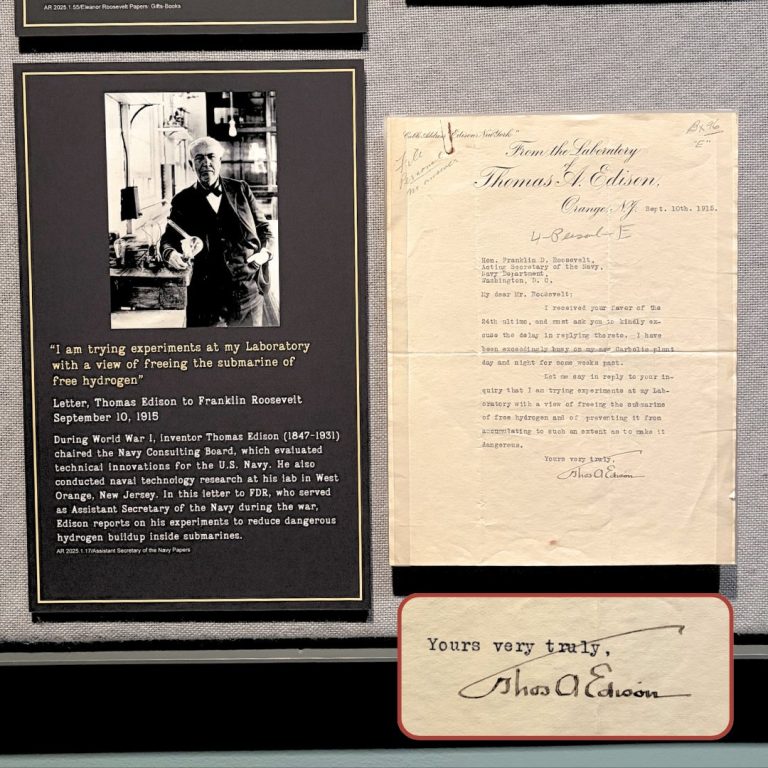 AR 2025.1.55/Eleanor Roosevelt Papers: Gifts-Books
"I am trying experiments at my Laboratory
with a view of freeing the submarine of
free hydrogen"
Letter, Thomas Edison to Franklin Roosevelt
September 10, 1915
During World War I, inventor Thomas Edison (1847-1931)
chaired the Navy Consulting Board, which evaluated
technical innovations for the U.S. Navy. He also
conducted naval technology research at his lab in West
Orange, New Jersey. In this letter to FDR, who served
as Assistant Secretary of the Navy during the war,
Edison reports on his experiments to reduce dangerous
hydrogen buildup inside submarines.
AR 2025.1.17/Assistant Secretary of the Navy Papers
"Edison, New York"
File
Personal
no answer
Bx 96
"E"
From the Laboratory
of
Thomas A. Edison,
Orange, N.J. Sept. 10th. 1915.
Hon. Franklin D. Roosevelt,
Acting Secretary of the Navy,
Navy Department,
Washington, D. C.
My dear Mr. Roosevelt:
I received your favor of the
24th ultimo, and must ask you to kindly ex-
cuse the delay in replying thereto. I have
been exceedingly busy on my new Carbolic plant
day and night for some weeks past.
Let me say in reply to your in-
quiry that I am trying experiments at my Lab-
oratory with a view of freeing the submarine
of free hydrogen and of preventing it from
accumulating to such an extent as to make it
dangerous.
Yours very truly,
Thos A Edison
Yours very truly,
Thos A Edison